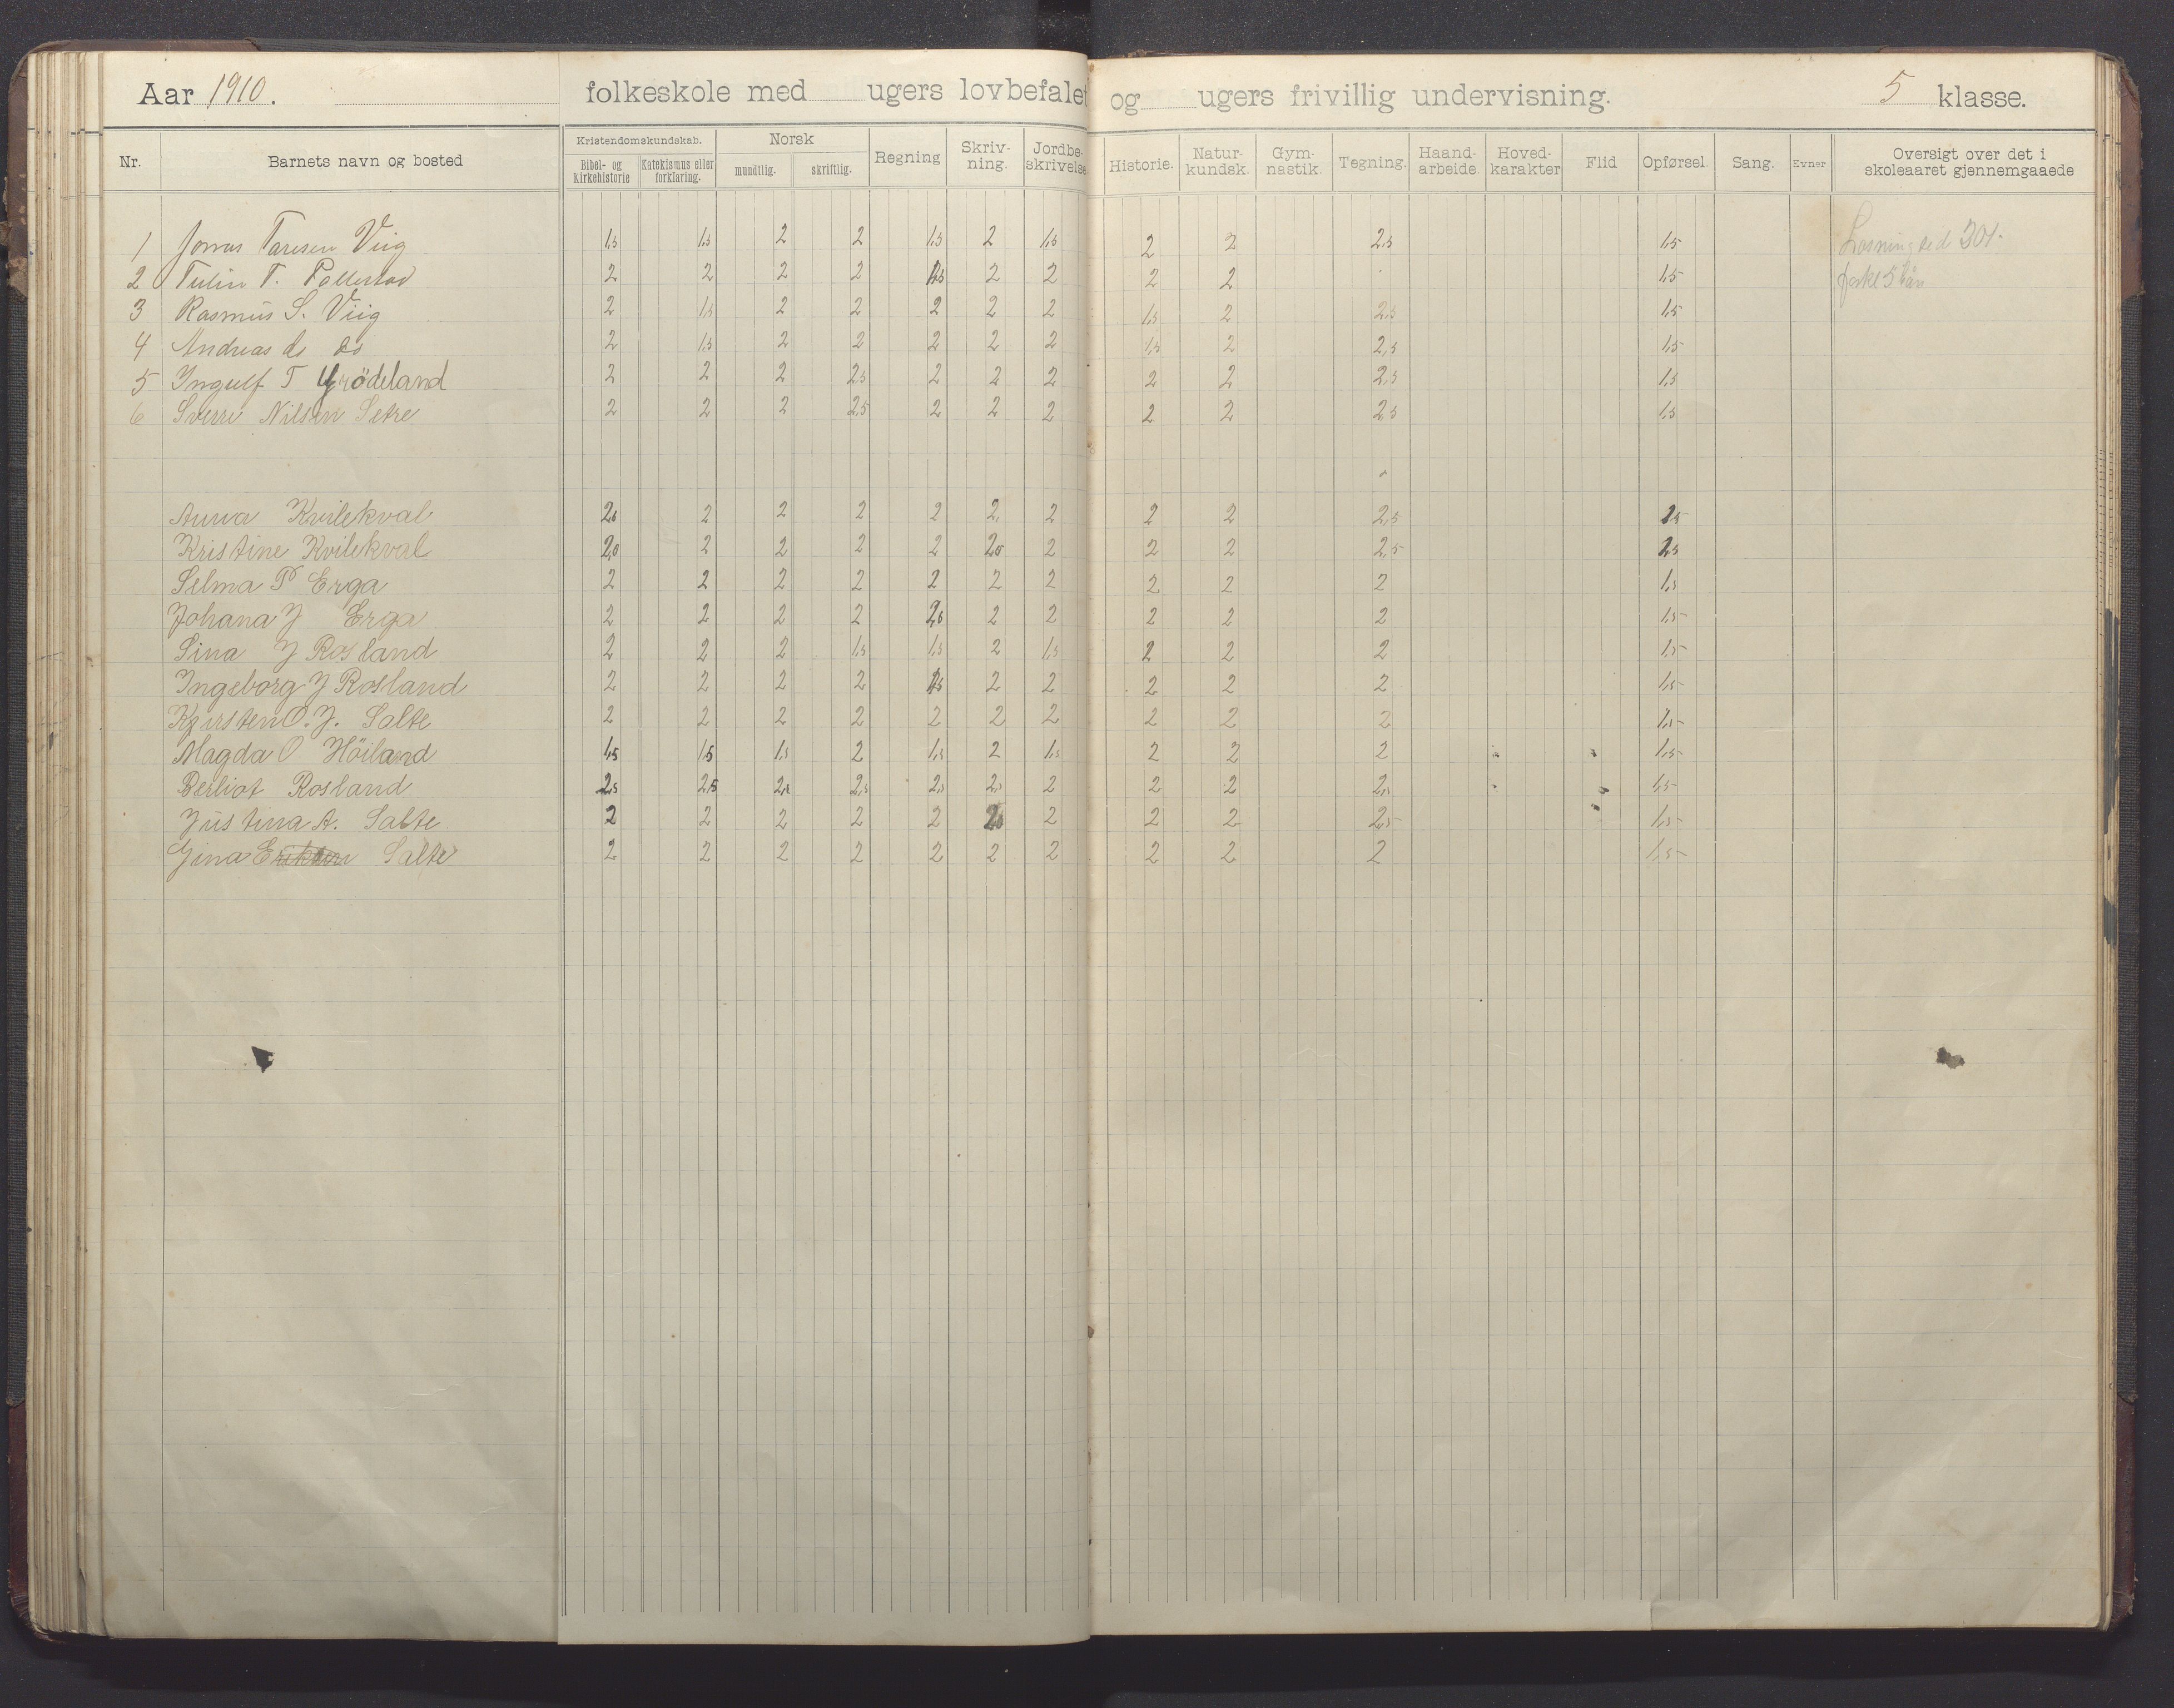 Aar 1910. folkeskole med ugers lovbefalet og ugers frivillig undervisning. 5 klasse.
Nr. Barnets navn og bosted Kristendomskundskab. Bibel- og Kirkehistorie Katekismus eller forklaring. Norsk mundtlig. skriftlig. Regning Skriv-ning. Jordbe-skrivelse Historie. Natur-kundsk. Gym-nastik. Tegning. Haand-arbeide. Hoved-karakter Flid Opførsel. Sang. Evner Oversigt over det i skoleaaret gjennemgaaede
1 Jonas Taresen Viig 1,5 1,5 2 2 1,5 2 1,5 2 2 2,5 1,5
2 T. 2 2 2 2 2 2 2 2 1,5
3 Rasmus S. Viig 2 1,5 2 2 2 2 2 1,5 2 2,5 1,5
4 Andreas do do 2 1,5 2 2 2 2 2 1,5 2 2,5 1,5
5 Ingulf T Grödeland 2 2 2 2,5 2 2 2 2 2 2,5 1,5
6 Sverre Nilsen Setre 2 2 2 2,5 2 2 2 2 2 2,5 1,5
Anna Kvilekval 2 2 2 2 2 2 2 2 2,5
Kristine Kvilekval 2 2 2 2 2 2 2 2,5
Selma P Erga 2 2 2 2 2 2 2 2 2 2 1,5
Johana J Erga 2 2 2 2 2 2 2 2 2 1,5
Sina J Rosland 2 2 2 1,5 1,5 2 1,5 2 2 2 1,5
Ingeborg J Rosland 2 2 2 2 2 2 2 2 2 1,5
Kjersten O. J. Salte 2 2 2 2 2 2 2 2 2 2 1,5
Magda O Höiland 1,5 1,5 1,5 2 1,5 2 1,5 2 2 2 1,5
Berliot Rosland 2,5 2,5 2,5 2,5 2,5 2,5 2 2 2 2,5 1,5
Justina A. Salte 2 2 2 2 2 2 2 2 2,5 1,5
Gina Salte 2 2 2 2 2 2 2 2 2 2 1,5